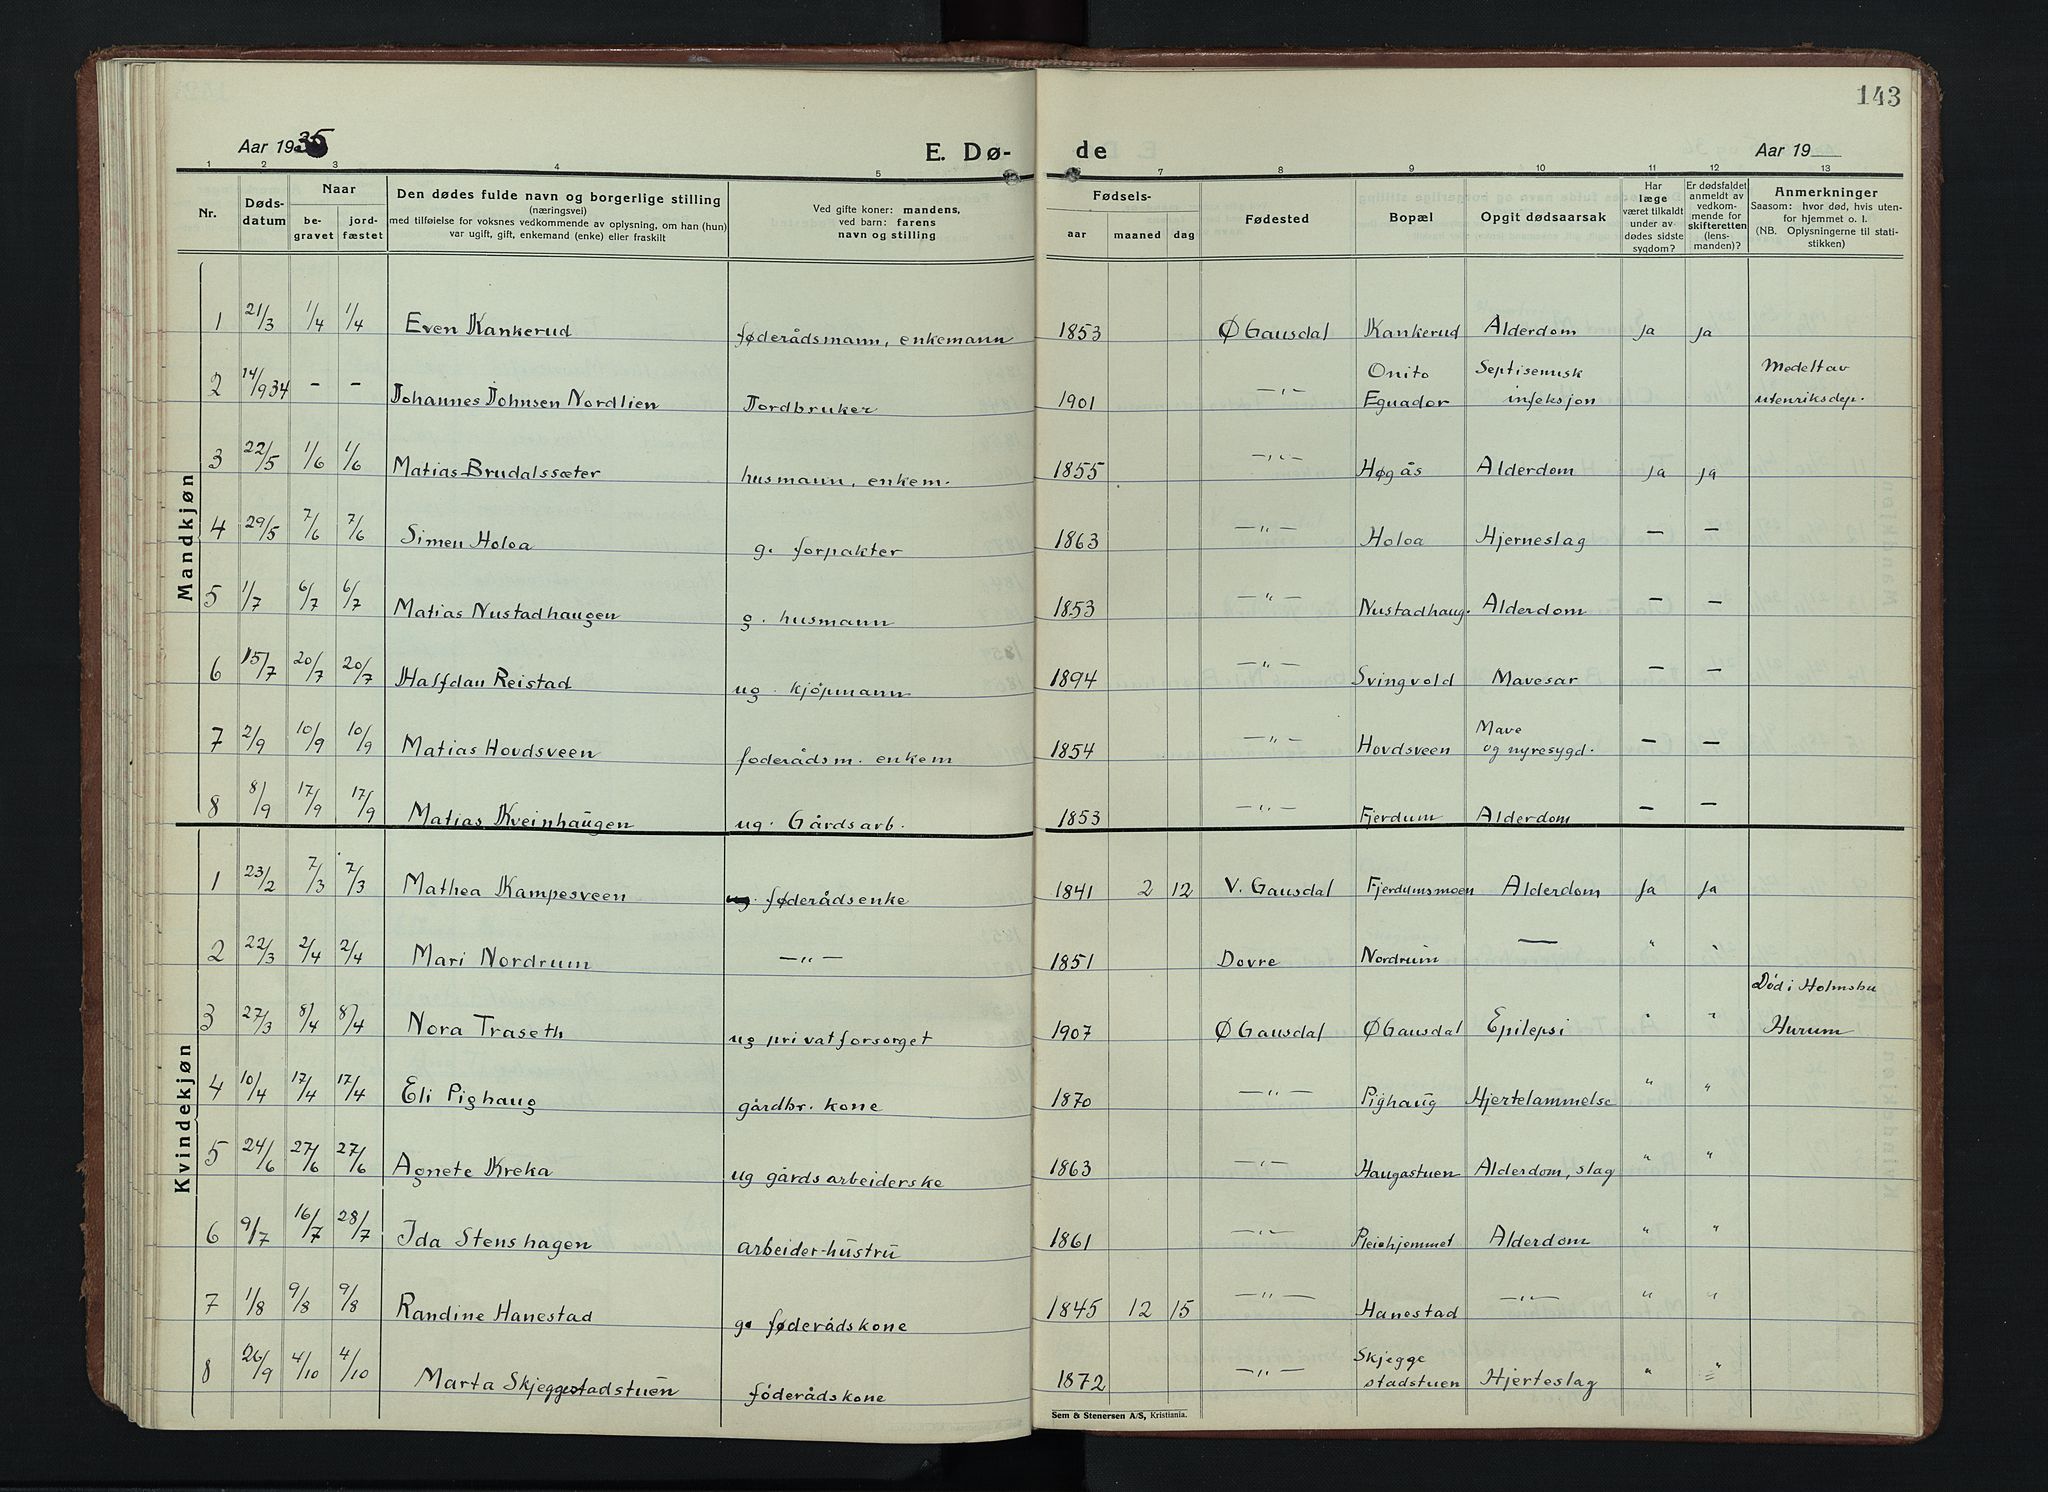 143
Aar 1935
E. Dø-
de
Aar 19
1 2 3 4 5 7 8 9 10 11 12 13
Nr.
Døds-
datum
Naar
be-
gravet
jord-
fæstet
Den dødes fulde navn og borgerlige stilling
(næringsvei)
med tilføielse for voksnes vedkommende av oplysning, om han (hun)
var ugift, gift, enkemand (enke) eller fraskilt
Ved gifte koner: mandens,
ved barn: farens
navn og stilling
Fødsels-
aar maaned dag
Fødested
Bopæl
Opgit dødsaarsak
Har
læge
været tilkaldt
under av-
dødes sidste
sygdom?
Er dødsfaldet
anmeldt av
vedkom-
mende for
skifteretten
(lens-
manden)?
Anmerkninger
Saasom: hvor død, hvis uten-
for hjemmet o. l.
(NB. Oplysningerne til stati-
stikken)
Mandkjøn
1 21/3 1/4 1/4 Even Kankerud føderådsmann, enkemann 1853 Ø Gausdal Kankerud Alderdom Ja Ja
2 14/9 34 - - Johannes Johnsen Nordlien Jordbruker 1901 —„— Onito Eguador Septisemisk infeksjon Medelt av utenriksdep.
3 22/5 1/6 1/6 Matias Brudalssæter husmann, enkem. 1855 —„— Høgås Alderdom Ja Ja
4 29/5 7/6 7/6 Simen Holoa g. forpakter 1863 —„— Holoa Hjerneslag — —
5 1/7 6/7 6/7 Matias Nustadhaugen g. husmann 1853 —„— Nustadhaug. Alderdom — —
6 15/7 20/7 20/7 Halfdan Reistad ug. kjøpmann 1894 —„— Svingvold Mavesar — —
7 2/9 10/9 10/9 Matias Hovdsveen foderådsm. enkem 1854 —„— Hovdsveen Mave og nyresygd. — —
8 8/9 17/9 17/9 Matias Kveinhaugen ug. Gårdsarb. 1853 —„— Fjerdum Alderdom — —
Kvindekjøn
1 23/2 7/3 7/3 Mathea Kampesveen ug. føderådsenke 1841 2 12 V. Gausdal Fjerdumsmoen Alderdom Ja Ja
2 22/3 2/4 2/4 Mari Nordrum —„— 1851 Dovre Nordrum — „ „
3 27/3 8/4 8/4 Nora Traseth ug privatforsorget 1907 Ø Gausdal Ø Gausdal Epilepsi „ „ Død i Holmsbu Hurum
4 10/4 17/4 17/4 Eli Pighaug gårdbr. kone 1870 —„— Pighaug Hjertelammelse „ „
5 24/6 27/6 27/6 Agnete Kreka ug gårdsarbeiderske 1863 —„— Haugastuen Alderdom, slag „ „
6 9/7 16/7 28/7 Ida Stenshagen arbeider-hustru 1861 —„— Pleiehjemmet Alderdom „ „
7 1/8 9/8 9/8 Randine Hanestad g. føderådskone 1845 12 15 —„— Hanestad —„— „ „
8 26/9 4/10 4/10 Marta Skjeggestadstuen föderådskone 1872 —„— Skjegge stadstuen Hjerteslag „ „
Sem & Stenersen A/S, Kristiania.